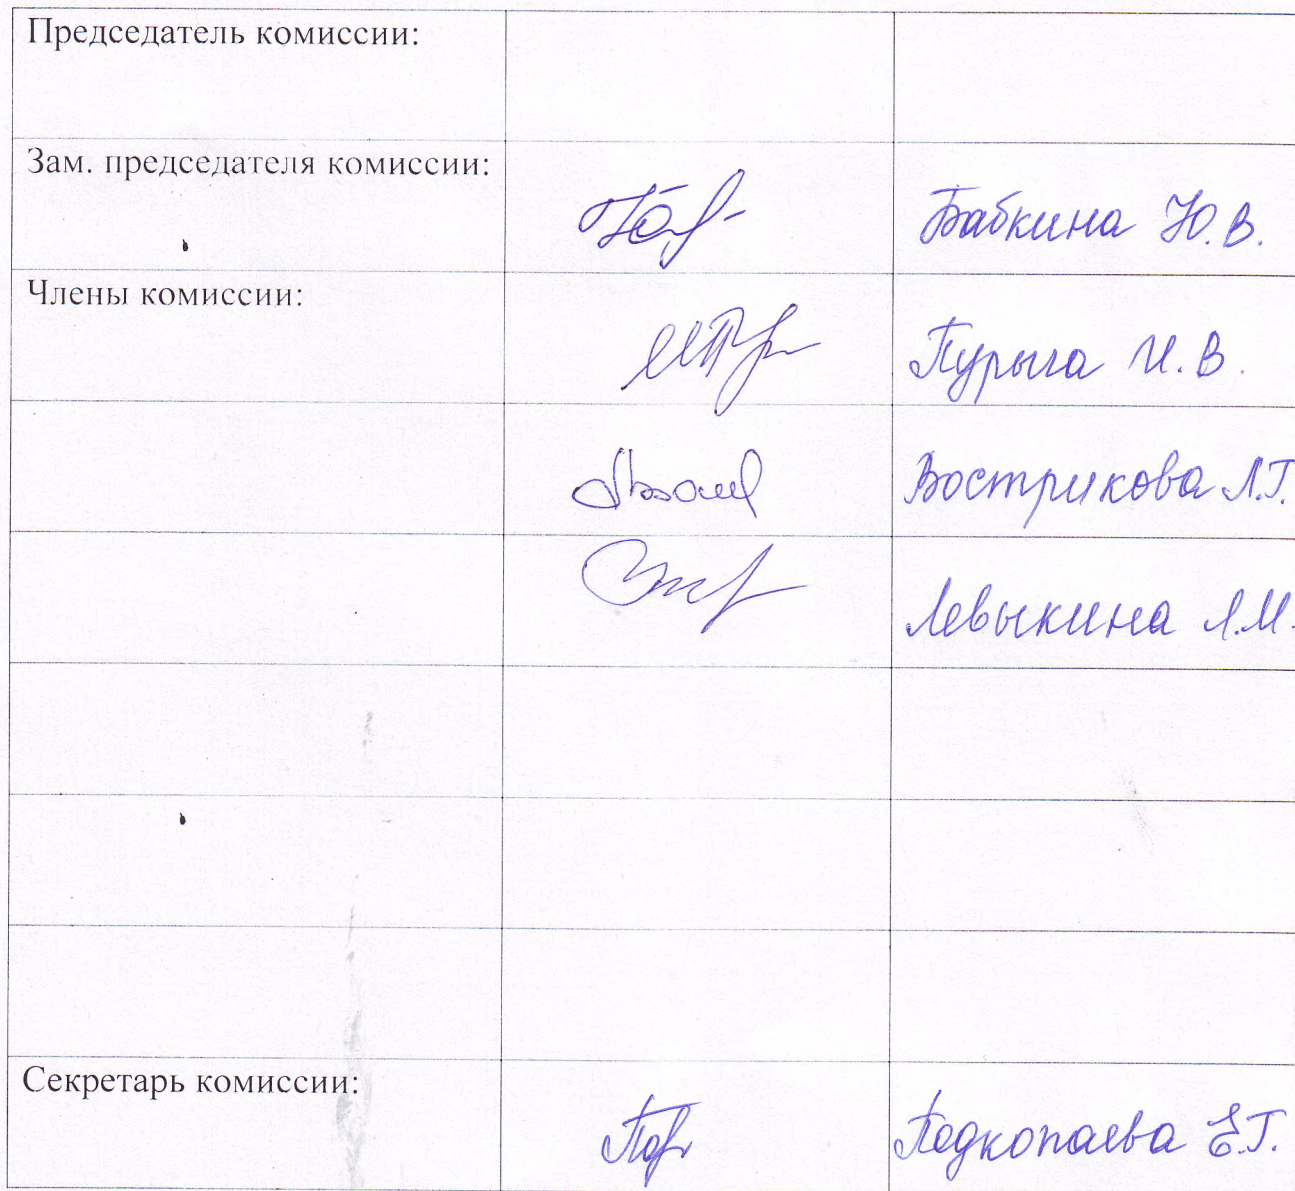 Председатель комиссии:
Зам. председателя комиссии:
Бабкина Ю.В.
Члены комиссии:
Пурыга И.В.
Вострикова Л.Г.
Левыкина Л.М.
Секретарь комиссии:
Подкопаева Е.Г.